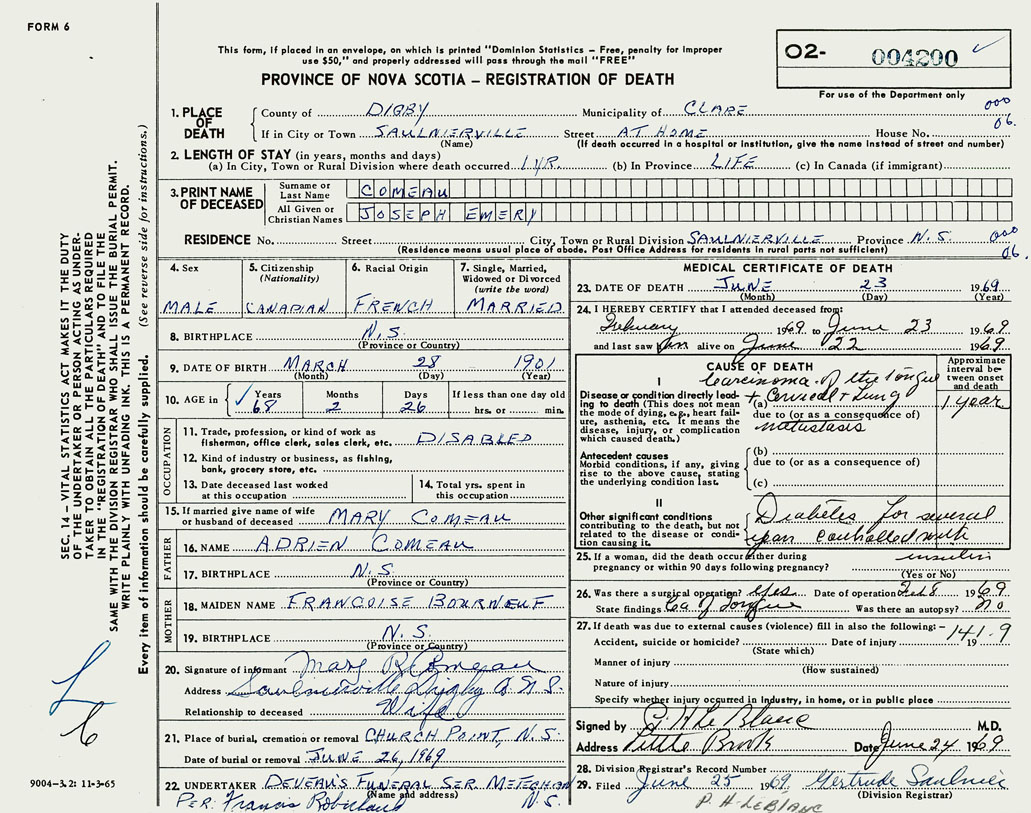 FORM 6
This form, if placed in an envelope, on which is printed "Dominion Statistics – Free, penalty for improper
use $50," and properly addressed will pass through the mail "FREE"
PROVINCE OF NOVA SCOTIA – REGISTRATION OF DEATH
02- 004200 ✓
For use of the Department only
1. PLACE OF DEATH
County of DIGBY Municipality of CLARE 000
06.
If in City or Town SAULNIERVILLE Street AT HOME House No.
(Name) (If death occurred in a hospital or institution, give the name instead of street and number)
2. LENGTH OF STAY (in years, months and days)
(a) In City, Town or Rural Division where death occurred 1 YR. (b) In Province LIFE (c) In Canada (if immigrant)
3. PRINT NAME OF DECEASED
Surname or Last Name COMEAU
All Given or Christian Names JOSEPH EMERY
RESIDENCE No. Street City, Town or Rural Division SAULNIERVILLE Province N.S. 000
(Residence means usual place of abode. Post Office Address for residents in rural parts not sufficient) 06.
SEC. 14 – VITAL STATISTICS ACT MAKES IT THE DUTY
OF THE UNDERTAKER OR PERSON ACTING AS UNDER-
TAKER TO OBTAIN ALL THE PARTICULARS REQUIRED
IN THE "REGISTRATION OF DEATH" AND TO FILE THE
SAME WITH THE DIVISION REGISTRAR WHO SHALL ISSUE THE BURIAL PERMIT.
WRITE PLAINLY WITH UNFADING INK. THIS IS A PERMANENT RECORD.
Every item of information should be carefully supplied. (See reverse side for instructions.)
4. Sex
MALE
5. Citizenship
(Nationality)
CANADIAN
6. Racial Origin
FRENCH
7. Single, Married,
Widowed or Divorced
(write the word)
MARRIED
8. BIRTHPLACE N.S.
(Province or Country)
9. DATE OF BIRTH MARCH 28 1901
(Month) (Day) (Year)
10. AGE in ✓ Years 68 Months 2 Days 26 If less than one day old
hrs. or min.
OCCUPATION
11. Trade, profession, or kind of work as
fisherman, office clerk, sales clerk, etc. DISABLED
12. Kind of industry or business, as fishing,
bank, grocery store, etc.
13. Date deceased last worked
at this occupation
14. Total yrs. spent in
this occupation
15. If married give name of wife
or husband of deceased MARY COMEAU
FATHER
16. NAME ADRIEN COMEAU
17. BIRTHPLACE N.S.
(Province or Country)
MOTHER
18. MAIDEN NAME FRANCOISE BOURNEUF
19. BIRTHPLACE N.S.
(Province or Country)
20. Signature of informant Mary R. Comeau
Address Saulnierville Digby Co N.S.
Relationship to deceased Wife
21. Place of burial, cremation or removal CHURCH POINT, N.S.
Date of burial or removal JUNE 26, 1969
22. UNDERTAKER DEVEAU'S FUNERAL SER. METEGHAN
(Name and address) N.S.
PER: Francis Robichaud
9004–3.2: 11-3-65
MEDICAL CERTIFICATE OF DEATH
23. DATE OF DEATH JUNE 23 1969
(Month) (Day) (Year)
24. I HEREBY CERTIFY that I attended deceased from:
February 1969 to June 23 1969
and last saw him alive on June 22 1969
CAUSE OF DEATH
Approximate
interval be-
tween onset
and death
I
Carcinoma of the tongue
Disease or condition directly lead-
ing to death (This does not mean
the mode of dying, e.g., heart fail-
ure, asthenia, etc. It means the
disease, injury, or complication
which caused death.)
(a) + Cervical + Lung 1 year
due to (or as a consequence of)
metastasis
Antecedent causes
Morbid conditions, if any, giving
rise to the above cause, stating
the underlying condition last.
(b)
due to (or as a consequence of)
(c)
II
Other significant conditions
contributing to the death, but not
related to the disease or condi-
tion causing it.
Diabetes for several
years controlled with
insulin
25. If a woman, did the death occur either during
pregnancy or within 90 days following pregnancy?
(Yes or No)
26. Was there a surgical operation? Yes Date of operation Feb 8 1969
State findings Ca of Tongue Was there an autopsy? no
27. If death was due to external causes (violence) fill in also the following: – 141.9
Accident, suicide or homicide? Date of injury 19
(State which)
Manner of injury
(How sustained)
Nature of injury
Specify whether injury occurred in industry, in home, or in public place
Signed by G. H. Le Blanc M.D.
Address Little Brook Date June 24 1969
28. Division Registrar's Record Number
29. Filed June 25 1969 Gertrude Saulnier
(Division Registrar)
P. H. LEBLANC